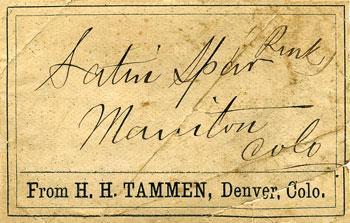 Satin Spar (Pink)
Maniton
Colo
From H. H. TAMMEN, Denver, Colo.